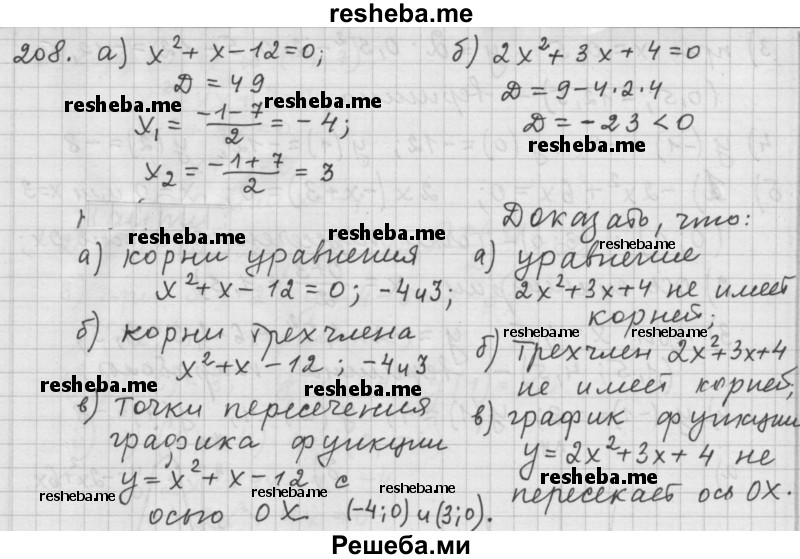 resheba.me
208. а) x² + x − 12 = 0;
Д = 49
resheba.me resheba.me
x₁ = (−1−7)/2 = −4;
x₂ = (−1+7)/2 = 3
б) 2x² + 3x + 4 = 0
Д = 9 − 4·2·4
Д = −23 < 0
resheba.me
resheba.me
а) корни уравнения
x² + x − 12 = 0; −4 и 3;
б) корни трехчлена
x² + x − 12; −4 и 3
resheba.me resheba.me
в) точки пересечения
графика функции
y = x² + x − 12 с
resheba.me resheba.me resheba.me
осью OX (−4;0) и (3;0).
Доказать, что:
resheba.me
а) уравнение
2x²+3x+4 не имеет
корней;
resheba.me resheba.me
б) трехчлен 2x²+3x+4
не имеет корней;
в) график функции
y = 2x²+3x+4 не
resheba.me
пересекает ось OX.
Решеба.ми